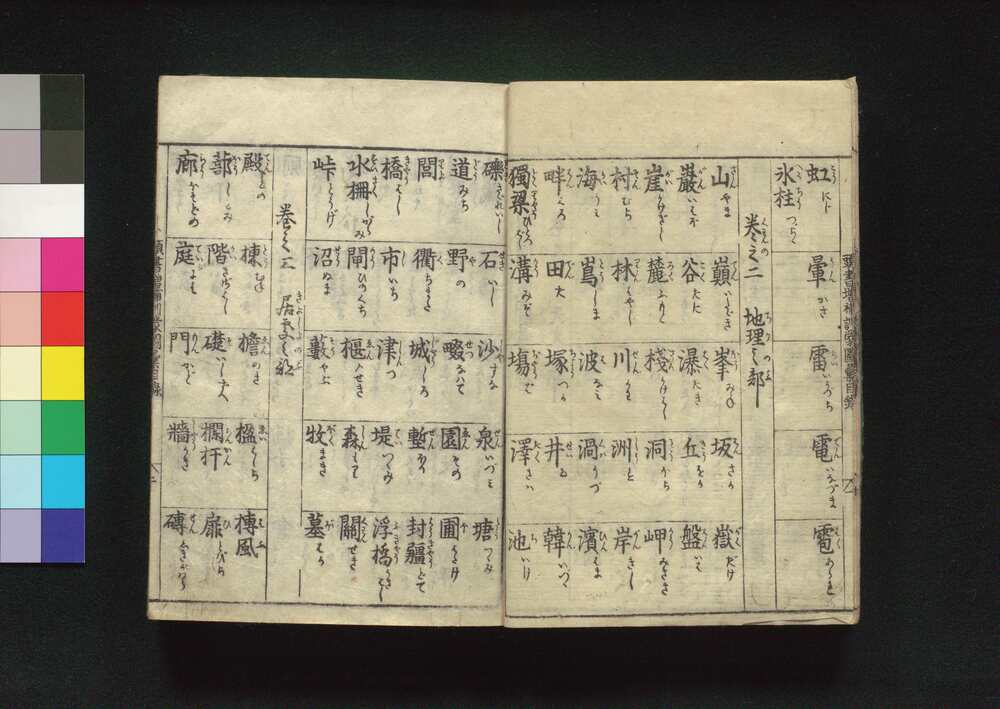 虹 にじ 暈 かさ 雷 いかづち 電 いなづま 雹 あられ
氷柱 つらら
巻之二 地理之部
山 やま 巓 いただき 峯 みね 坂 さか 嶽 だけ
巖 いはほ 谷 たに 瀑 たき 丘 をか 盤 いは
崖 麓 ふもと 棧 かけはし 洞 ほら 岬 みさき
村 むら 林 はやし 川 かは 洲 す 岸 きし
海 うみ 嶌 しま 波 なみ 渦 うづ 濱 はま
畔 くろ 田 た 塚 つか 井 ゐ 韓 いづつ
獨梁 溝 みぞ 塲 ば 澤 さは 池 いけ
礫 さざれいし 石 いし 沙 すな 泉 いづみ 塘 つつみ
道 みち 野 の 畷 なはて 園 その 圃 はたけ
閭 衢 ちまた 城 しろ 塹 ほり 封疆
橋 はし 市 いち 津 つ 堤 つつみ 浮橋 うきはし
水柵 しがらみ 閘 ひのくち 堰 ゐせき 森 もり 關 せき
峠 とうげ 沼 ぬま 藪 やぶ 牧 まき 墓 はか
巻之三 居處之部
殿 との 棟 むね 檐 のき 楹 はしら 榑風
蔀 しとみ 階 きざはし 礎 いしずへ 欄杆 扉 とびら
廊 ほそどの 庭 にわ 門 かど 牆 かき 磚 しきがはら